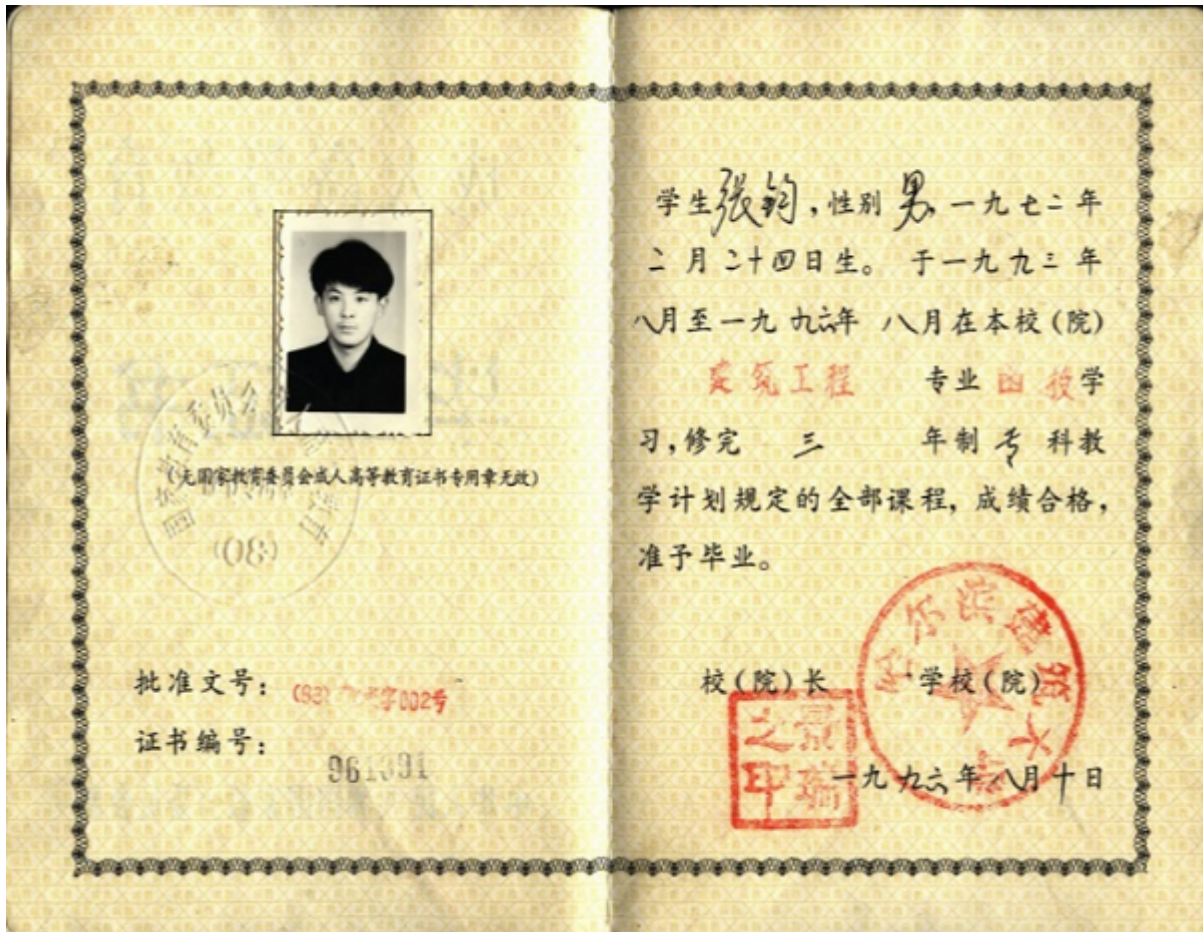 (无国家教育委员会成人高等教育证书专用章无效)
国家教育委员会
(30)
批准文号：
002号
证书编号：
961091
学生张钧,性别男,一九七二年
二月二十四日生。于一九九三年
八月至一九九六年 八月在本校(院)
建筑工程 专业函授学
习,修完 三 年制专科教
学计划规定的全部课程,成绩合格,
准予毕业。
校(院)长 学校(院)
哈尔滨建筑大学
景瑞
之印
一九九六年八月十日